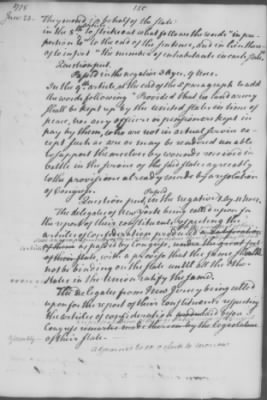 1778 185
June 23. They moved in behalf of the state
in the 8th to strike out what follows the words "in pro
portion to" to the end of the sentence, and in lieu there
of to insert "the number of inhabitants in each state,"
Question put.
Passed in the negative 3 ayes, 9 noes.
In the 9th article, at the end of the 5 paragraph to add
the words following "Provided that no land army
shall be kept up by the united states in time of
peace, nor any officers or pensioners kept in
pay by them, who are not in actual service ex
cept such as are or may be rendered unable
to support themselves by wounds received in
battle in the service of the said states agreeably
to the provisions already made by a resolution
of Congress.
Passed
Question put in the negative
The delegates of New York being called upon for
the report of their constituents respecting the
articles of confederation produced
of their state, with a proviso that the same should
not be binding on the state until all the other
states in the Union ratify the same.
The delegates from New Jersey being called
upon for the report of their constituents respecting
the articles of confederation
Congress remarks made thereon by the legislature
of their state.
Adjourned to 10 o'Clock to morrow